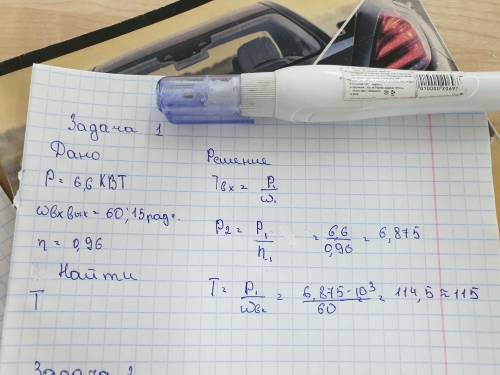 Задача 1
Дано
P = 6,6 КВТ
ωвх вых = 60; 15 рад
η = 0,96
Найти
T
Решение
Tвх = P₁ / ω₁
P2 = P₁ / η₁ = 6,6 / 0,96 = 6,875
T = P₁ / ωвх = 6,875 · 10³ / 60 = 114,5 ≈ 115
Задача 2